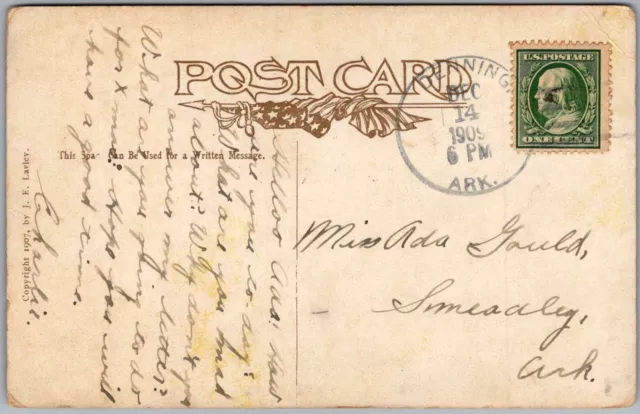 POST CARD
This Space Can Be Used for a Written Message.
Copyright 1907, by J. E. Lavley.
DENNING,
DEC
14
1909
6 PM
ARK.
U.S. POSTAGE
ONE CENT
Helloo Ada: How
are you to day?
What are you mad
about? Why don't you
answer my letter?
What are you going to do
for X mas. Hope you will
have a good time.
Charlie.
Miss Ada Gould,
Smeadley,
Ark.